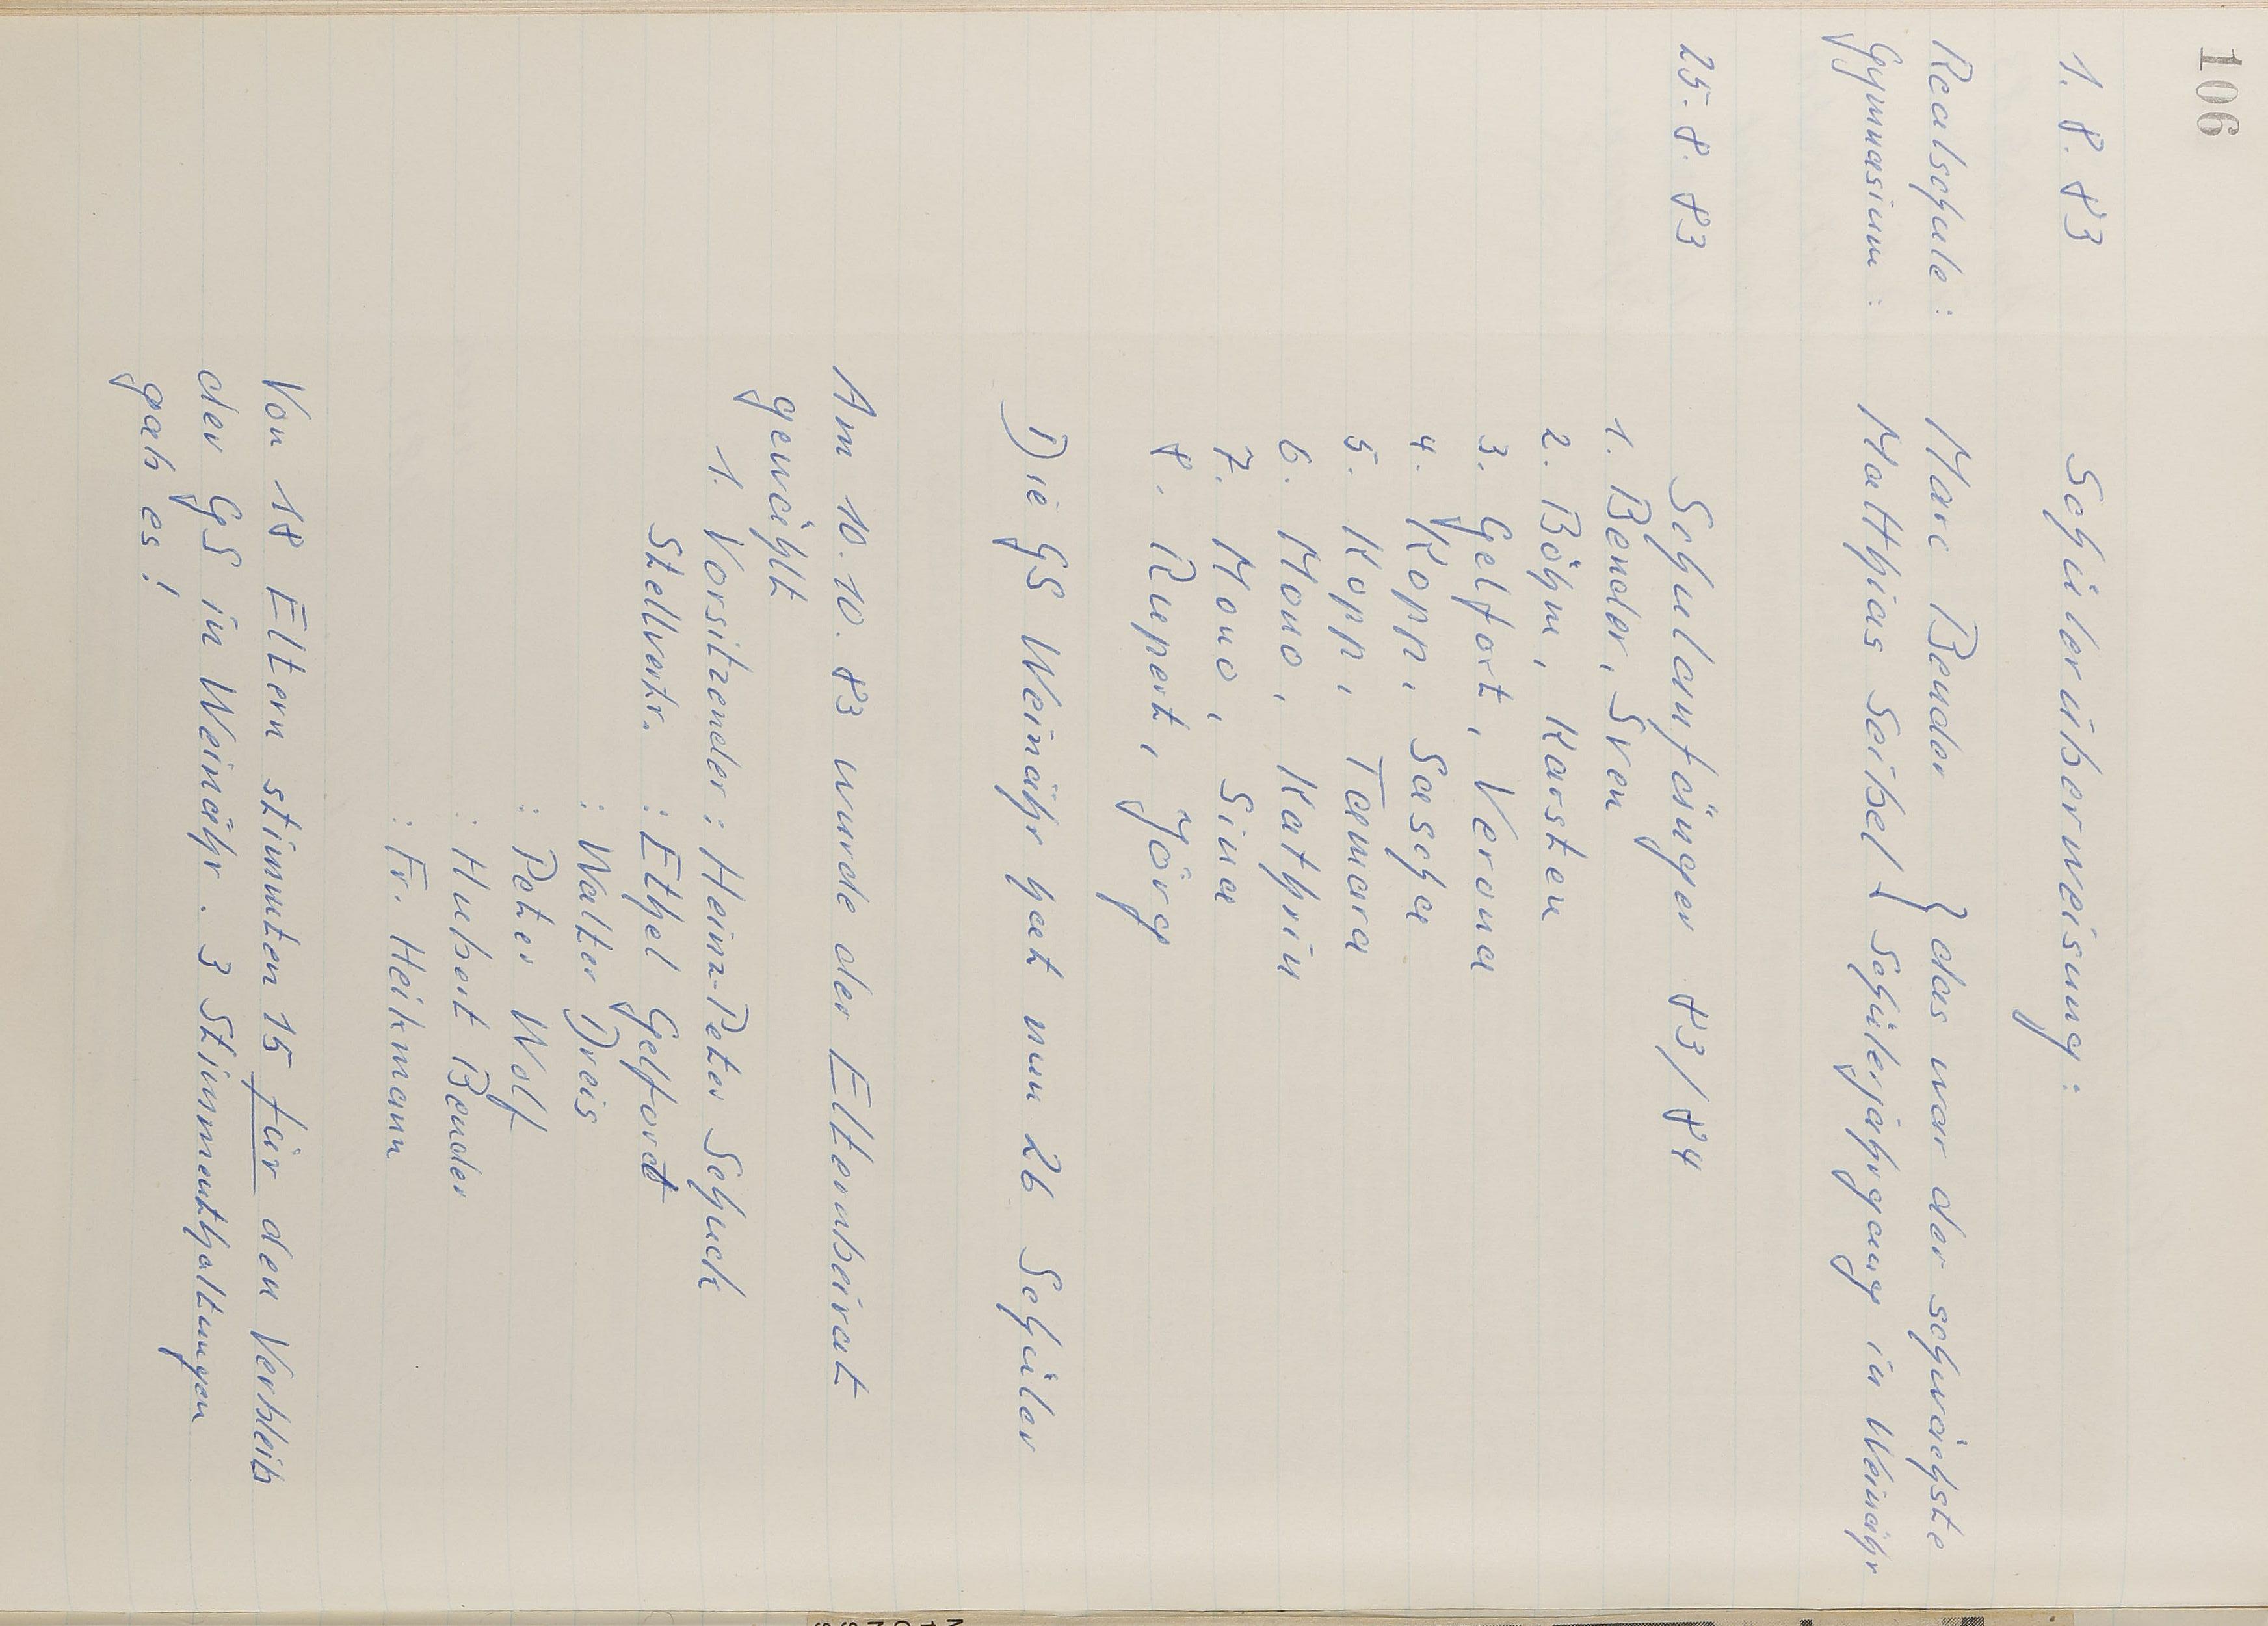 106
1. 8. 83 Schülerüberweisung:
Realschule: Marc Bender } das war der schwächste
Gymnasium: Matthias Seibel } Schülerjahrgang in Weinähr
25. 8. 83 Schulanfänger 83/84
1. Bender, Sven
2. Böhm, Karsten
3. Gelfort, Verona
4. Kopp, Sascha
5. Kopp, Tamara
6. Mono, Kathrin
7. Mono, Sina
8. Rupert, Jörg
Die GS Weinähr hat nun 26 Schüler
Am 10. 10. 83 wurde der Elternbeirat
gewählt
1. Vorsitzender: Heinz-Peter Schuck
Stellvertr. : Ethel Gelfort
: Walter Dreis
: Peter Wolf
: Hubert Bender
: Fr. Heikmann
Von 18 Eltern stimmten 15 für den Verbleib
der GS in Weinähr. 3 Stimmenthaltungen
gab es!